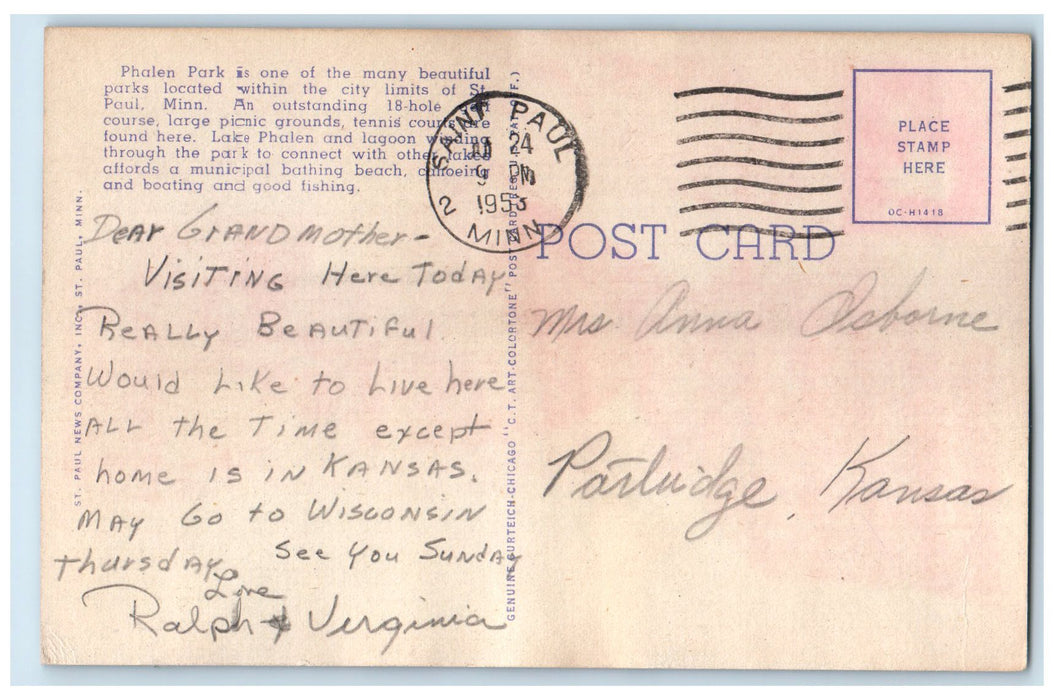 Phalen Park is one of the many beautiful
parks located within the city limits of St.
Paul, Minn. An outstanding 18-hole golf
course, large picnic grounds, tennis courts are
found here. Lake Phalen and lagoon winding
through the park to connect with other lakes
affords a municipal bathing beach, canoeing
and boating and good fishing.
Dear Grandmother-
Visiting Here Today
Really Beautiful
Would Like to Live here
ALL the Time except
home is in KANSAS.
MAY Go to Wisconsin
thursday See You Sunday
Love
Ralph & Verginia
ST. PAUL NEWS COMPANY, INC., ST. PAUL, MINN.
GENUINE CURTEICH-CHICAGO "C.T. ART-COLORTONE" POST CARD (REG. U.S. PAT. OFF.)
SAINT PAUL
24
9 PM
1953
2 MINN.
POST CARD
PLACE
STAMP
HERE
OC-H1418
Mrs Anna Osborne
Partridge, Kansas